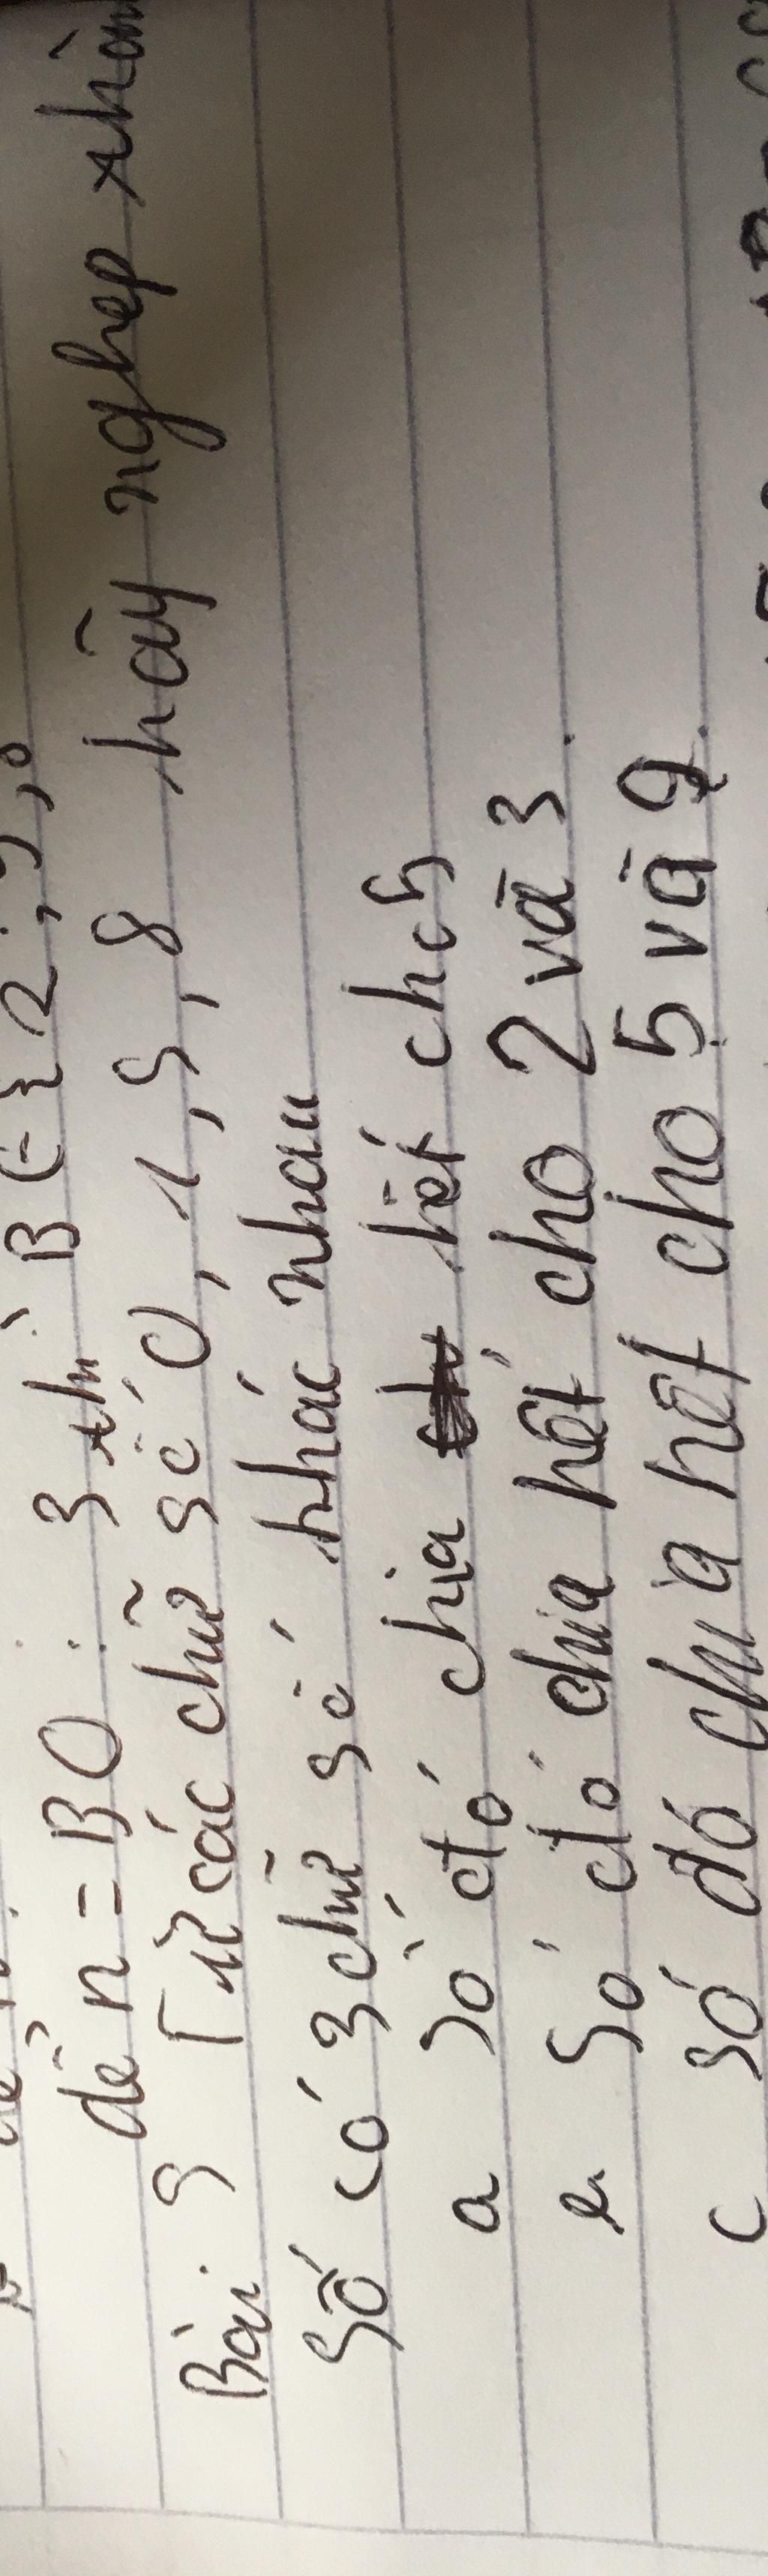 để n = BO 3 thì B ∈ {2;5;8
Bài 9 Từ các chữ số 0, 1, 5, 8 hãy nghép thàn
Số có 3 chữ số khác nhau
a Số đó chia hết cho 5
Số đó chia hết cho 2 và 3.
c Số đó chia hết cho 5 và 9.